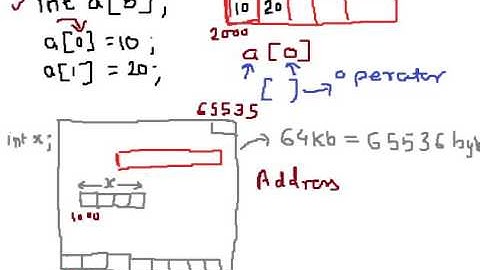 int a[5];
10 20
2000
a[0] = 10;
a[1] = 20;
a [0]
[ ] → operator
65535
int x;
64kb = 65536 by
x
1000
Address